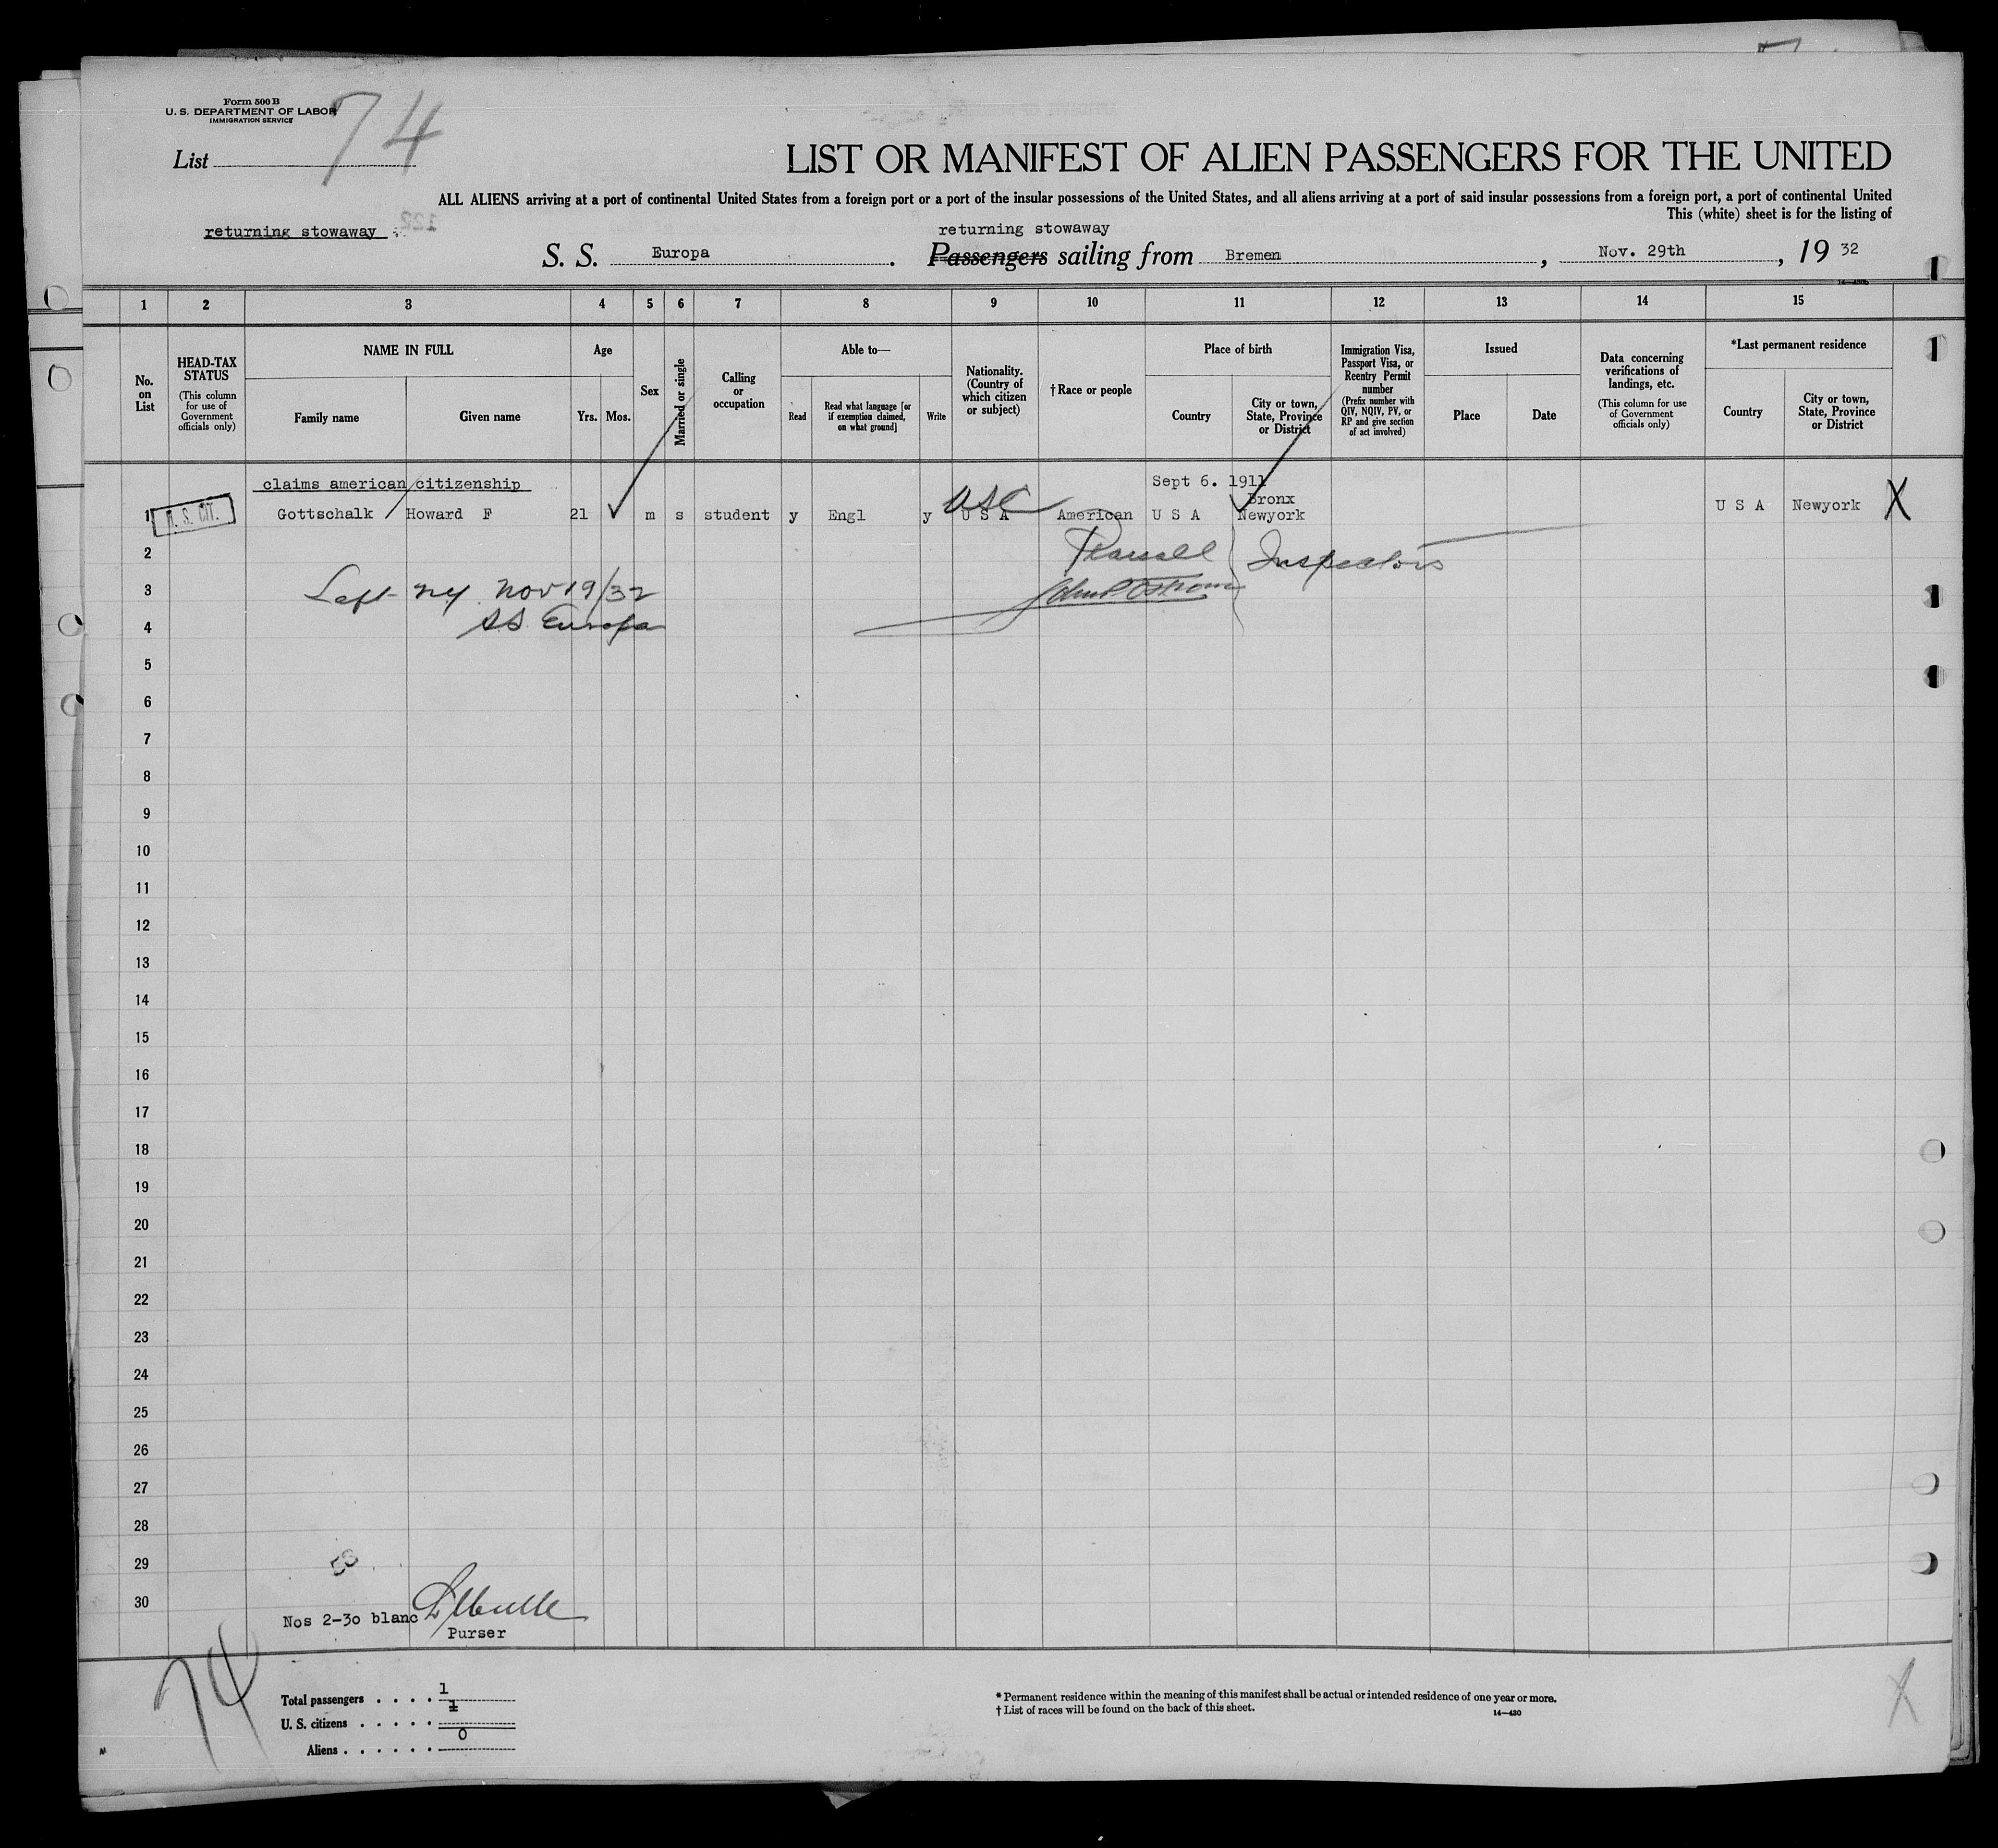 Form 500 B
U. S. DEPARTMENT OF LABOR
IMMIGRATION SERVICE
74
List
LIST OR MANIFEST OF ALIEN PASSENGERS FOR THE UNITED
ALL ALIENS arriving at a port of continental United States from a foreign port or a port of the insular possessions of the United States, and all aliens arriving at a port of said insular possessions from a foreign port, a port of continental United
This (white) sheet is for the listing of
returning stowaway
122
returning stowaway
S. S. Europa. Passengers sailing from Bremen, Nov. 29th, 19 32
1 2 3 4 5 6 7 8 9 10 11 12 13 14 15
No. on List
HEAD-TAX STATUS
(This column for use of Government officials only)
NAME IN FULL
Family name
Given name
Age
Yrs.
Mos.
Sex
Married or single
Calling or occupation
Able to—
Read
Read what language [or if exemption claimed, on what ground]
Write
Nationality. (Country of which citizen or subject)
† Race or people
Place of birth
Country
City or town, State, Province or District
Immigration Visa, Passport Visa, or Reentry Permit number
(Prefix number with QIV, NQIV, PV, or RP and give section of act involved)
Issued
Place
Date
Data concerning verifications of landings, etc.
(This column for use of Government officials only)
*Last permanent residence
Country
City or town, State, Province or District
claims american citizenship
Sept 6. 1911
Bronx
1 U. S. CIT. Gottschalk Howard F 21 m s student y Engl y U S A USC American U S A Newyork U S A Newyork X
2 Inspectors
3 Left NY Nov 19/32
4 SS Europa
5
6
7
8
9
10
11
12
13
14
15
16
17
18
19
20
21
22
23
24
25
26
27
28
29
30
Nos 2-30 blanc
Purser
74
Total passengers . . . . 1
U. S. citizens . . . . . 1
Aliens . . . . . . 0
* Permanent residence within the meaning of this manifest shall be actual or intended residence of one year or more.
† List of races will be found on the back of this sheet.
14—430
X